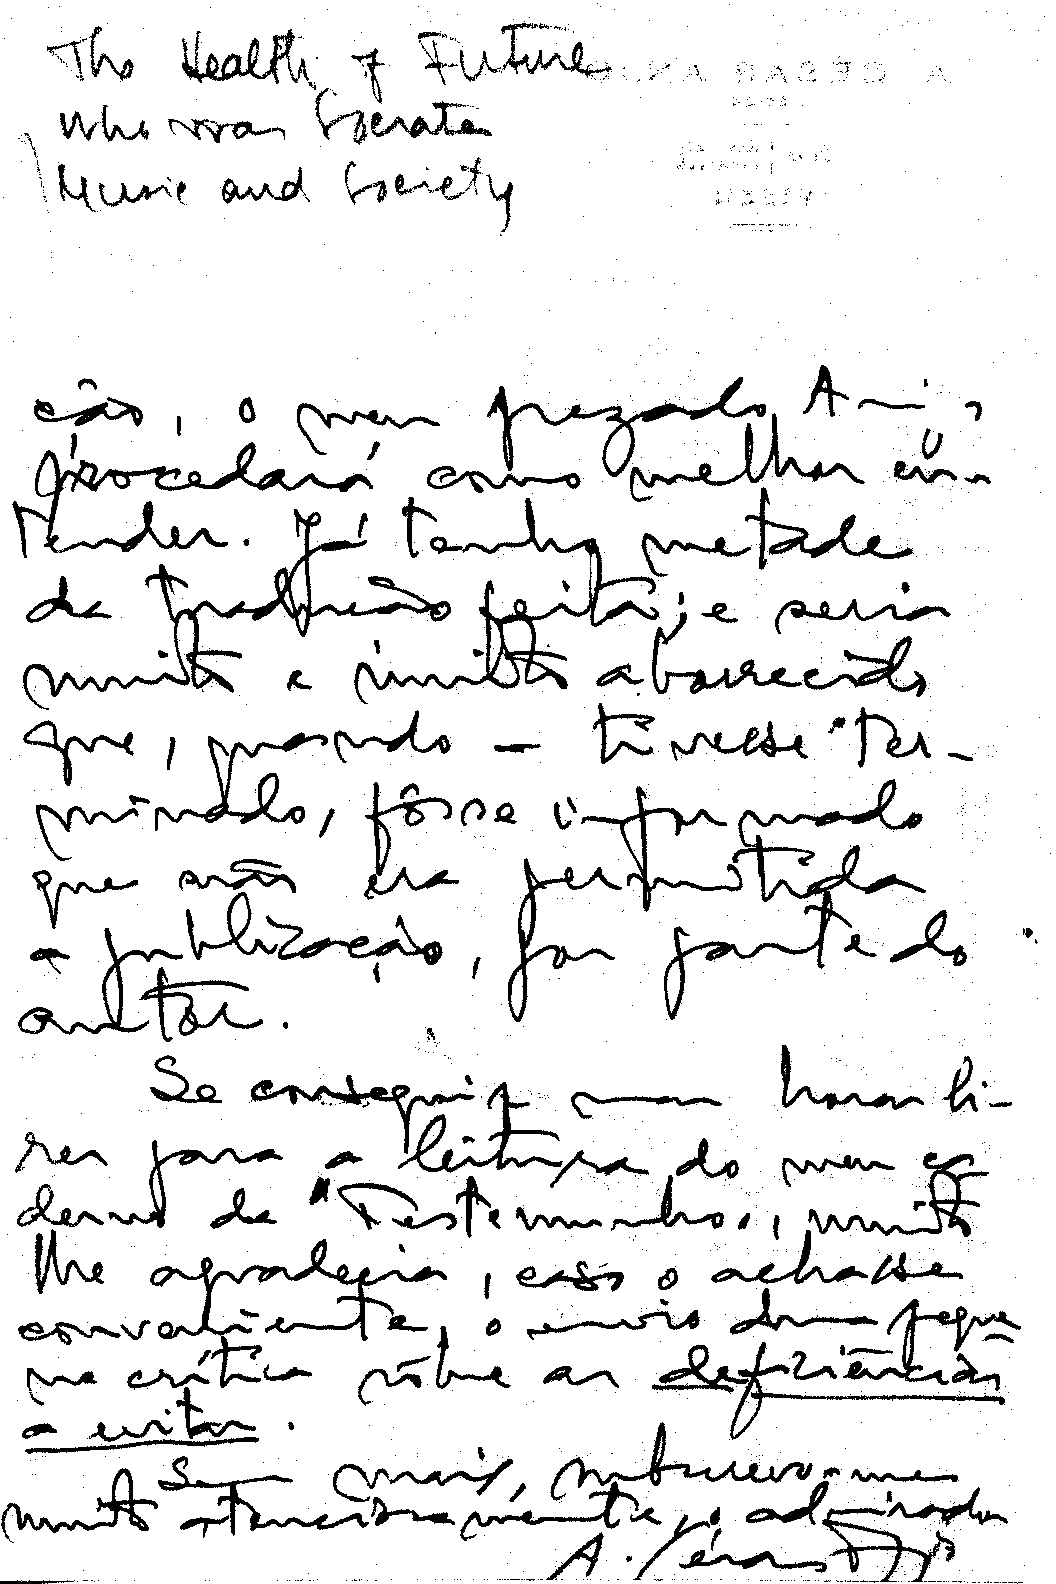 The Health of Future
Who was Socrates
Music and Society
A. CESAR AN
VIZEU
ção, o meu prezado Am.º,
procederá como melhor en-
tender. Já tenho metade
da tradução feita; e seria
muito e muito aborrecido
que, quando — tivesse ter-
minado, fôsse informado
que não era permitida
a publicação, por parte do
autor.
Se conseguir uma hora li-
vre para a leitura do meu ca
derno de "Testemunho", muito
lhe agradecia, caso o achasse
conveniente, o envio duma peque
na crítica sôbre as deficiências
a evitar.
Sem mais, subscrevo-me
muito atenciosamente, o admirador
A. César